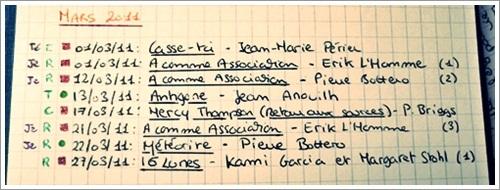 MARS 2011
Je E 01/03/11: Casse-toi - Jean-Marie Périer
Je R 01/03/11: A comme Association - Erik L'Homme (1)
Je R 12/03/11: A comme Association - Pierre Bottero (2)
T 13/03/11: Antigone - Jean Anouilh
C 17/03/11: Mercy Thompson (Retour aux sources) - P. Briggs
Je R 21/03/11: A comme Association - Erik L'Homme (3)
Je R 22/03/11: Météorite - Pierre Bottero
R 27/03/11: 16 Lunes - Kami Garcia et Margaret Stohl (1)